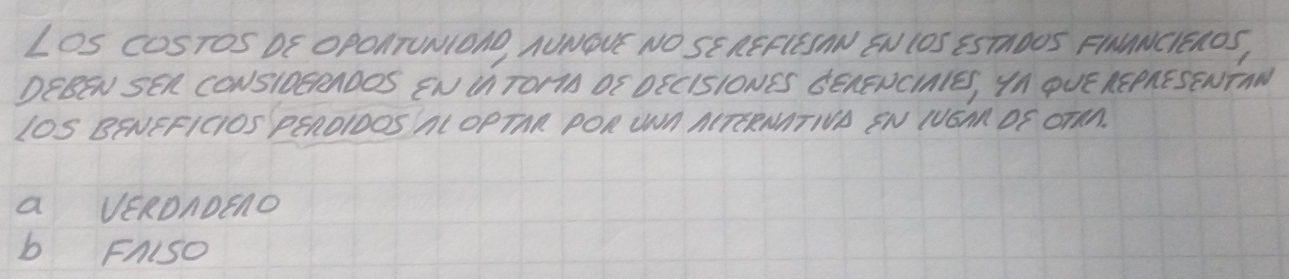 LOS COSTOS DE OPORTUNIDAD, AUNQUE NO SE REFIESAN EN LOS ESTADOS FINANCIEROS,
DEBEN SER CONSIDERADOS EN LA TOMA DE DECISIONES GERENCIALES, YA QUE REPRESENTAN
LOS BENEFICIOS PERDIDOS AL OPTAR POR UNA ALTERNATIVA EN LUGAR DE OTRA.
a VERDADERO
b FALSO